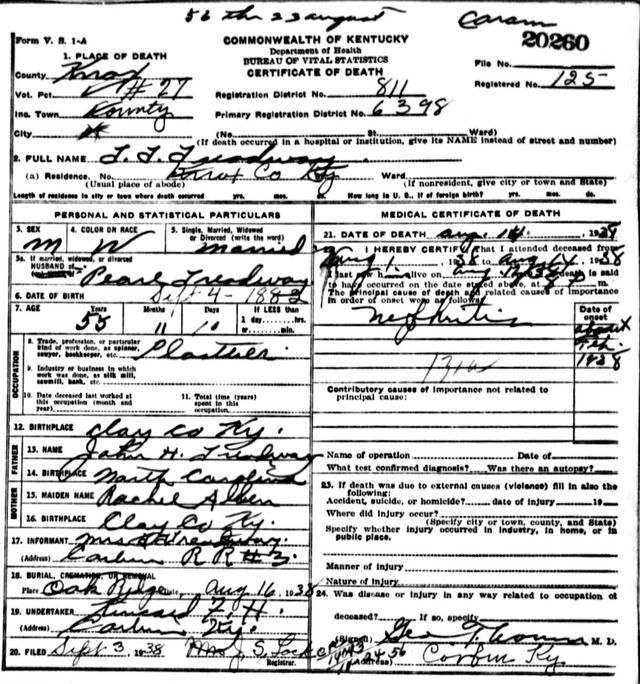 56 the 23 august
Form V. S. 1-A
COMMONWEALTH OF KENTUCKY
Department of Health
BUREAU OF VITAL STATISTICS
CERTIFICATE OF DEATH
20260
File No.
Registered No. 125
1. PLACE OF DEATH
County Knox
Vot. Pct. #27
Inc. Town County
City
Registration District No. 811
Primary Registration District No. 6398
(No. St. Ward)
(If death occurred in a hospital or institution, give its NAME instead of street and number)
2. FULL NAME Treadway
(a) Residence. No. Knox Co Ky Ward
(Usual place of abode) (If nonresident, give city or town and State)
Length of residence in city or town where death occurred yrs. mos. ds. How long in U. S., if of foreign birth? yrs. mos. ds.
PERSONAL AND STATISTICAL PARTICULARS
3. SEX M
4. COLOR OR RACE W
5. Single, Married, Widowed or Divorced (write the word) Married
5a. If married, widowed, or divorced
HUSBAND of Pearl Treadway
6. DATE OF BIRTH Sept-4-1882
7. AGE Years 55 Months 11 Days 10 If LESS than 1 day......hrs. or......min.
OCCUPATION
8. Trade, profession, or particular kind of work done, as spinner, sawyer, bookkeeper, etc.
9. Industry or business in which work was done, as silk mill, sawmill, bank, etc.
10. Date deceased last worked at this occupation (month and year)
11. Total time (years) spent in this occupation.
12. BIRTHPLACE Clay Co Ky.
FATHER
13. NAME John H. Treadway
14. BIRTHPLACE North Carolina
MOTHER
15. MAIDEN NAME Rachel
16. BIRTHPLACE Clay Co Ky.
17. INFORMANT Mrs Treadway
(Address) Corbin R R # 3
18. BURIAL, CREMATION, OR REMOVAL
Place Oak Ridge Date Aug 16, 1938
19. UNDERTAKER F. H.
(Address) Corbin Ky.
20. FILED Sept 3, 1938
Registrar.
MEDICAL CERTIFICATE OF DEATH
21. DATE OF DEATH Aug 14, 1938
I HEREBY CERTIFY, That I attended deceased from
Aug 1, 1938 to Aug 14, 1938
I last saw h alive on Aug 1938, death is said
to have occurred on the date stated above, at m.
The principal cause of death and related causes of importance
in order of onset were as follows:
Nephritis
Date of onset
about
Feb.
1938
Contributory causes of importance not related to
principal cause:
Name of operation Date of
What test confirmed diagnosis? Was there an autopsy?
23. If death was due to external causes (violence) fill in also the
following:
Accident, suicide, or homicide? date of injury 19
Where did injury occur?
(Specify city or town, county, and State)
Specify whether injury occurred in industry, in home, or in
public place.
Manner of injury
Nature of injury
24. Was disease or injury in any way related to occupation of
deceased? If so, specify
(Signed) Geo M. D.
(Address) Corbin Ky.